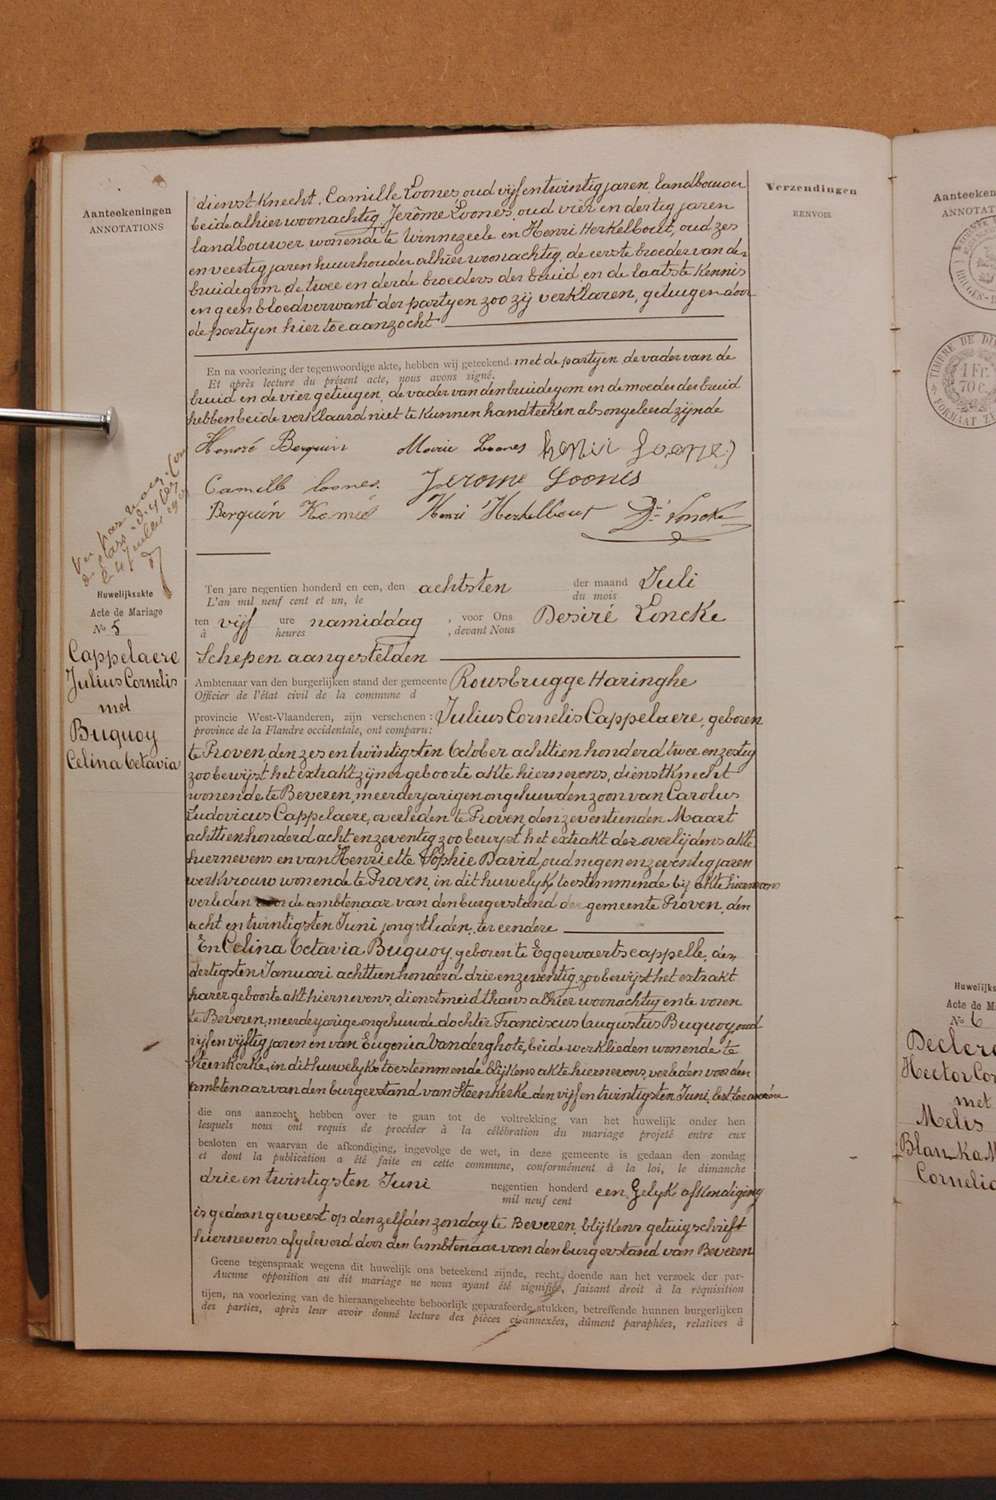 Aanteekeningen
ANNOTATIONS
dienstknecht, Camille Loones, oud vijf en twintig jaren, landbouwer
beide alhier woonachtig, Jerôme Loones, oud vier en dertig jaren
landbouwer wonende te Winnezeele en Henri Herkelbout, oud zes
en veertig jaren huurhouder alhier woonachtig, de eerste broeder van den
bruidegom, de twee en derde broeders der bruid en de laatste kennis
en geen bloedverwant der partyen zoo zij verklaren, getuigen door
de partyen hiertoe aanzocht
En na voorlezing der tegenwoordige akte, hebben wij geteekend met de partyen de vader van de
Et après lecture du présent acte, nous avons signé.
bruid en de vier getuigen, de vader van den bruidegom en de moeder der bruid
hebben beide verklaard niet te kunnen handteeken als ongeleerd zijnde
Honoré Berquin Marie Loones henri Loones
Camille loones. Jerome Loones
Berquin Henri Herkelbout Dé Loncke
Huwelijksakte
Acte de Mariage
No 5
Cappelaere
Julius Cornelis
met
Buquoy
Celina Octavia
Ten jare negentien honderd en een, den achtsten der maand Juli
L'an mil neuf cent et un, le du mois
ten vijf ure namiddag , voor Ons Desiré Loncke
à heures , devant Nous
Schepen aangestelden
Ambtenaar van den burgerlijken stand der gemeente Rousbrugge Haringhe
Officier de l'état civil de la commune d
provincie West-Vlaanderen, zijn verschenen : Julius Cornelis Cappelaere, geboren
province de la Flandre occidentale, ont comparu :
te Proven, den zes en twintigsten October achttien honderd twee en zestig
zoo bewijst het extrakt zijner geboorte akte hiernevens, dienstknecht
wonende te Beveren, meerderjarigen ongehuwden zoon van Carolus
Ludovicus Cappelaere, overleden te Proven, den zeventienden Maart
achttien honderd acht en zeventig zoo bewyst het extrakt der overlijdens akte
hiernevens en van Henriette Sophie David, oud negen en zeventig jaren
werkvrouw wonende te Proven, in dit huwelyk toestemmende bij akte hiernevens
verleden voor de ambtenaar van den burgerstand der gemeente Proven, den
acht en twintigsten Juni jongstleden, ter eendere
En Celina Octavia Buquoy, geboren te Eggewaertscappelle, den
dertigsten Januari achttien honderd drie en zeventig, zoo bewijst het extrakt
harer geboorte akt hiernevens, dienstmeid thans alhier woonachtig en te voren
te Beveren, meerderjarige ongehuwde dochter Franciscus Augustus Buquoy, oud
vijf en vijftig jaren en van Eugenia Vanderghote, beide werklieden wonende te
Steenkerke, in dit huwelyk toestemmende blijkens akte hiernevens, verleden voor den
ambtenaar van den burgerstand van Steenkerke den vijf en twintigsten Juni, lest ter eendere
die ons aanzocht hebben over te gaan tot de voltrekking van het huwelijk onder hen
lesquels nous ont requis de procéder à la célébration du mariage projeté entre eux
besloten en waarvan de afkondiging, ingevolge de wet, in deze gemeente is gedaan den zondag
et dont la publication a été faite en cette commune, conformément à la loi, le dimanche
drie en twintigsten Juni negentien honderd een, Gelyk afkondiging
mil neuf cent
is gedaan geweest op den zelfden zondag te Beveren, blijkens getuigschrift
hiernevens afgeleverd door den Ambtenaar van den burgerstand van Beveren
Geene tegenspraak wegens dit huwelijk ons beteekend zijnde, recht doende aan het verzoek der par-
Aucune opposition au dit mariage ne nous ayant été signifiée, faisant droit à la réquisition
tijen, na voorlezing van de hieraangehechte behoorlijk geparafeerde stukken, betreffende hunnen burgerlijken
des parties, après leur avoir donné lecture des pièces ci-annexées, dûment paraphées, relatives à
Verzendingen
RENVOIS
Aanteeken
ANNOTAT
TIMBRE DE DI
1 Fr.
70 c.
FORMAAT
Huwelijks
Acte de M
No 6
Declerc
Hector Cor
met
Melis
Blanka M
Cornelia